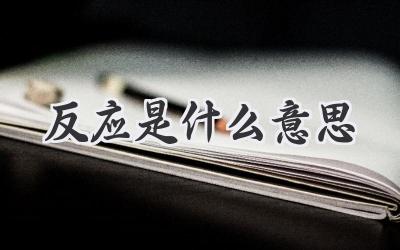 反应是什么意思